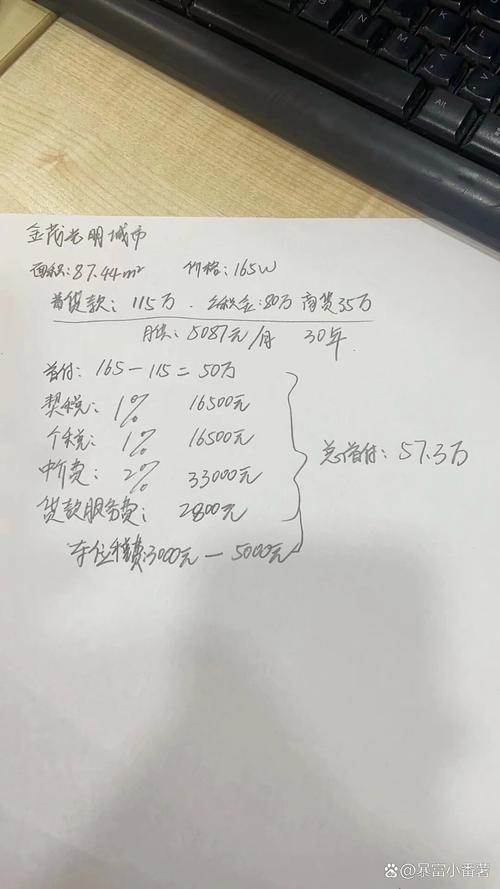 金茂光明城市
面积:87.44m² 价格:165W
贷款: 115万. 公积金:80万 商贷35万
月供: 5087元/月 30年
首付: 165-115=50万
契税: 1% 16500元
个税: 1% 16500元
中介费: 2% 33000元
贷款服务费: 2800元
车位税费:3000元-5000元
总首付: 57.3万
Alt
Ctrl
@暴富小番薯